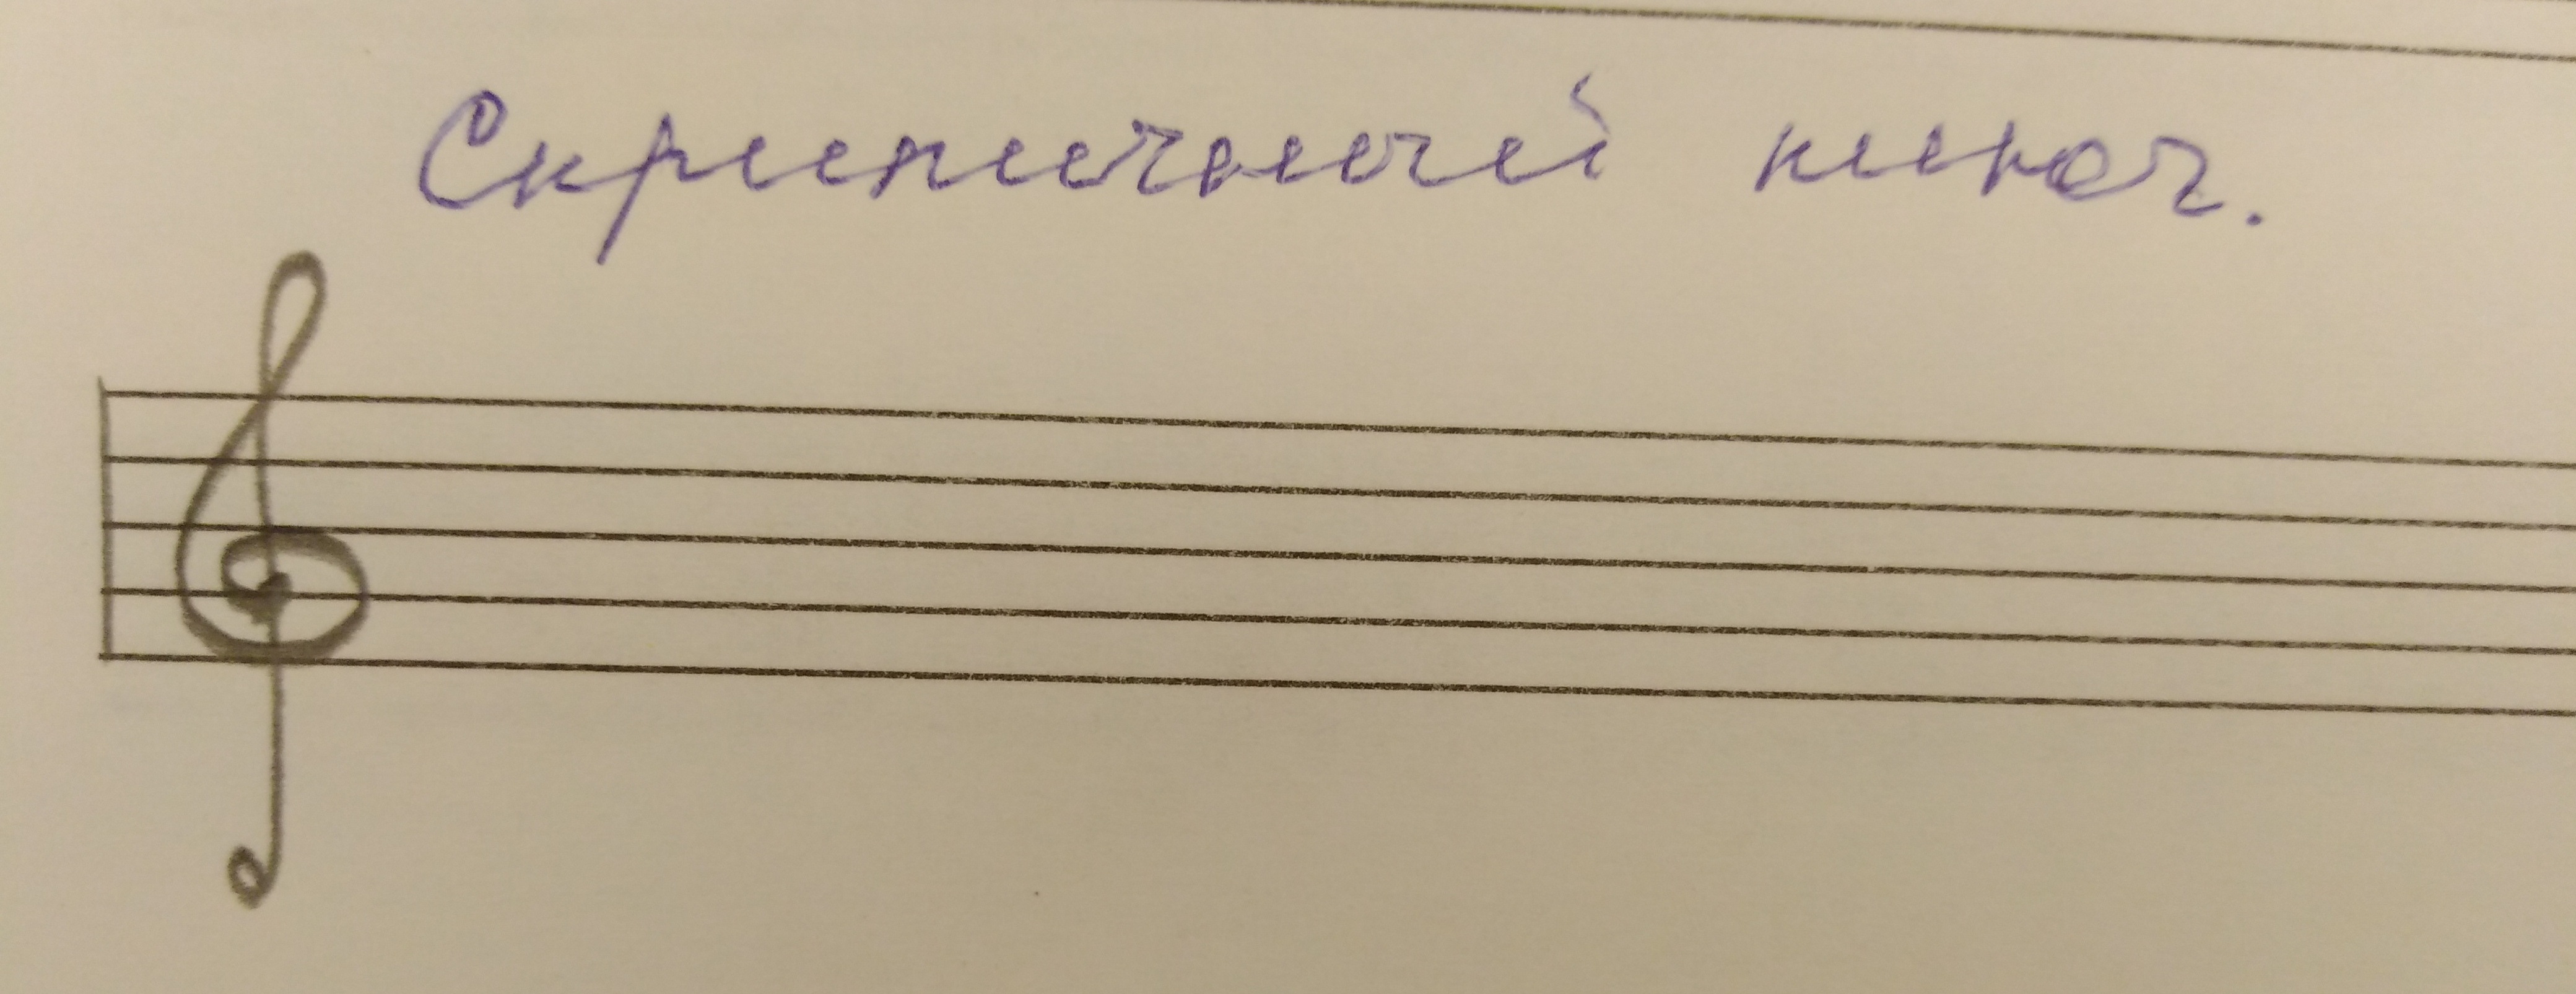 Скрипичный ключ.